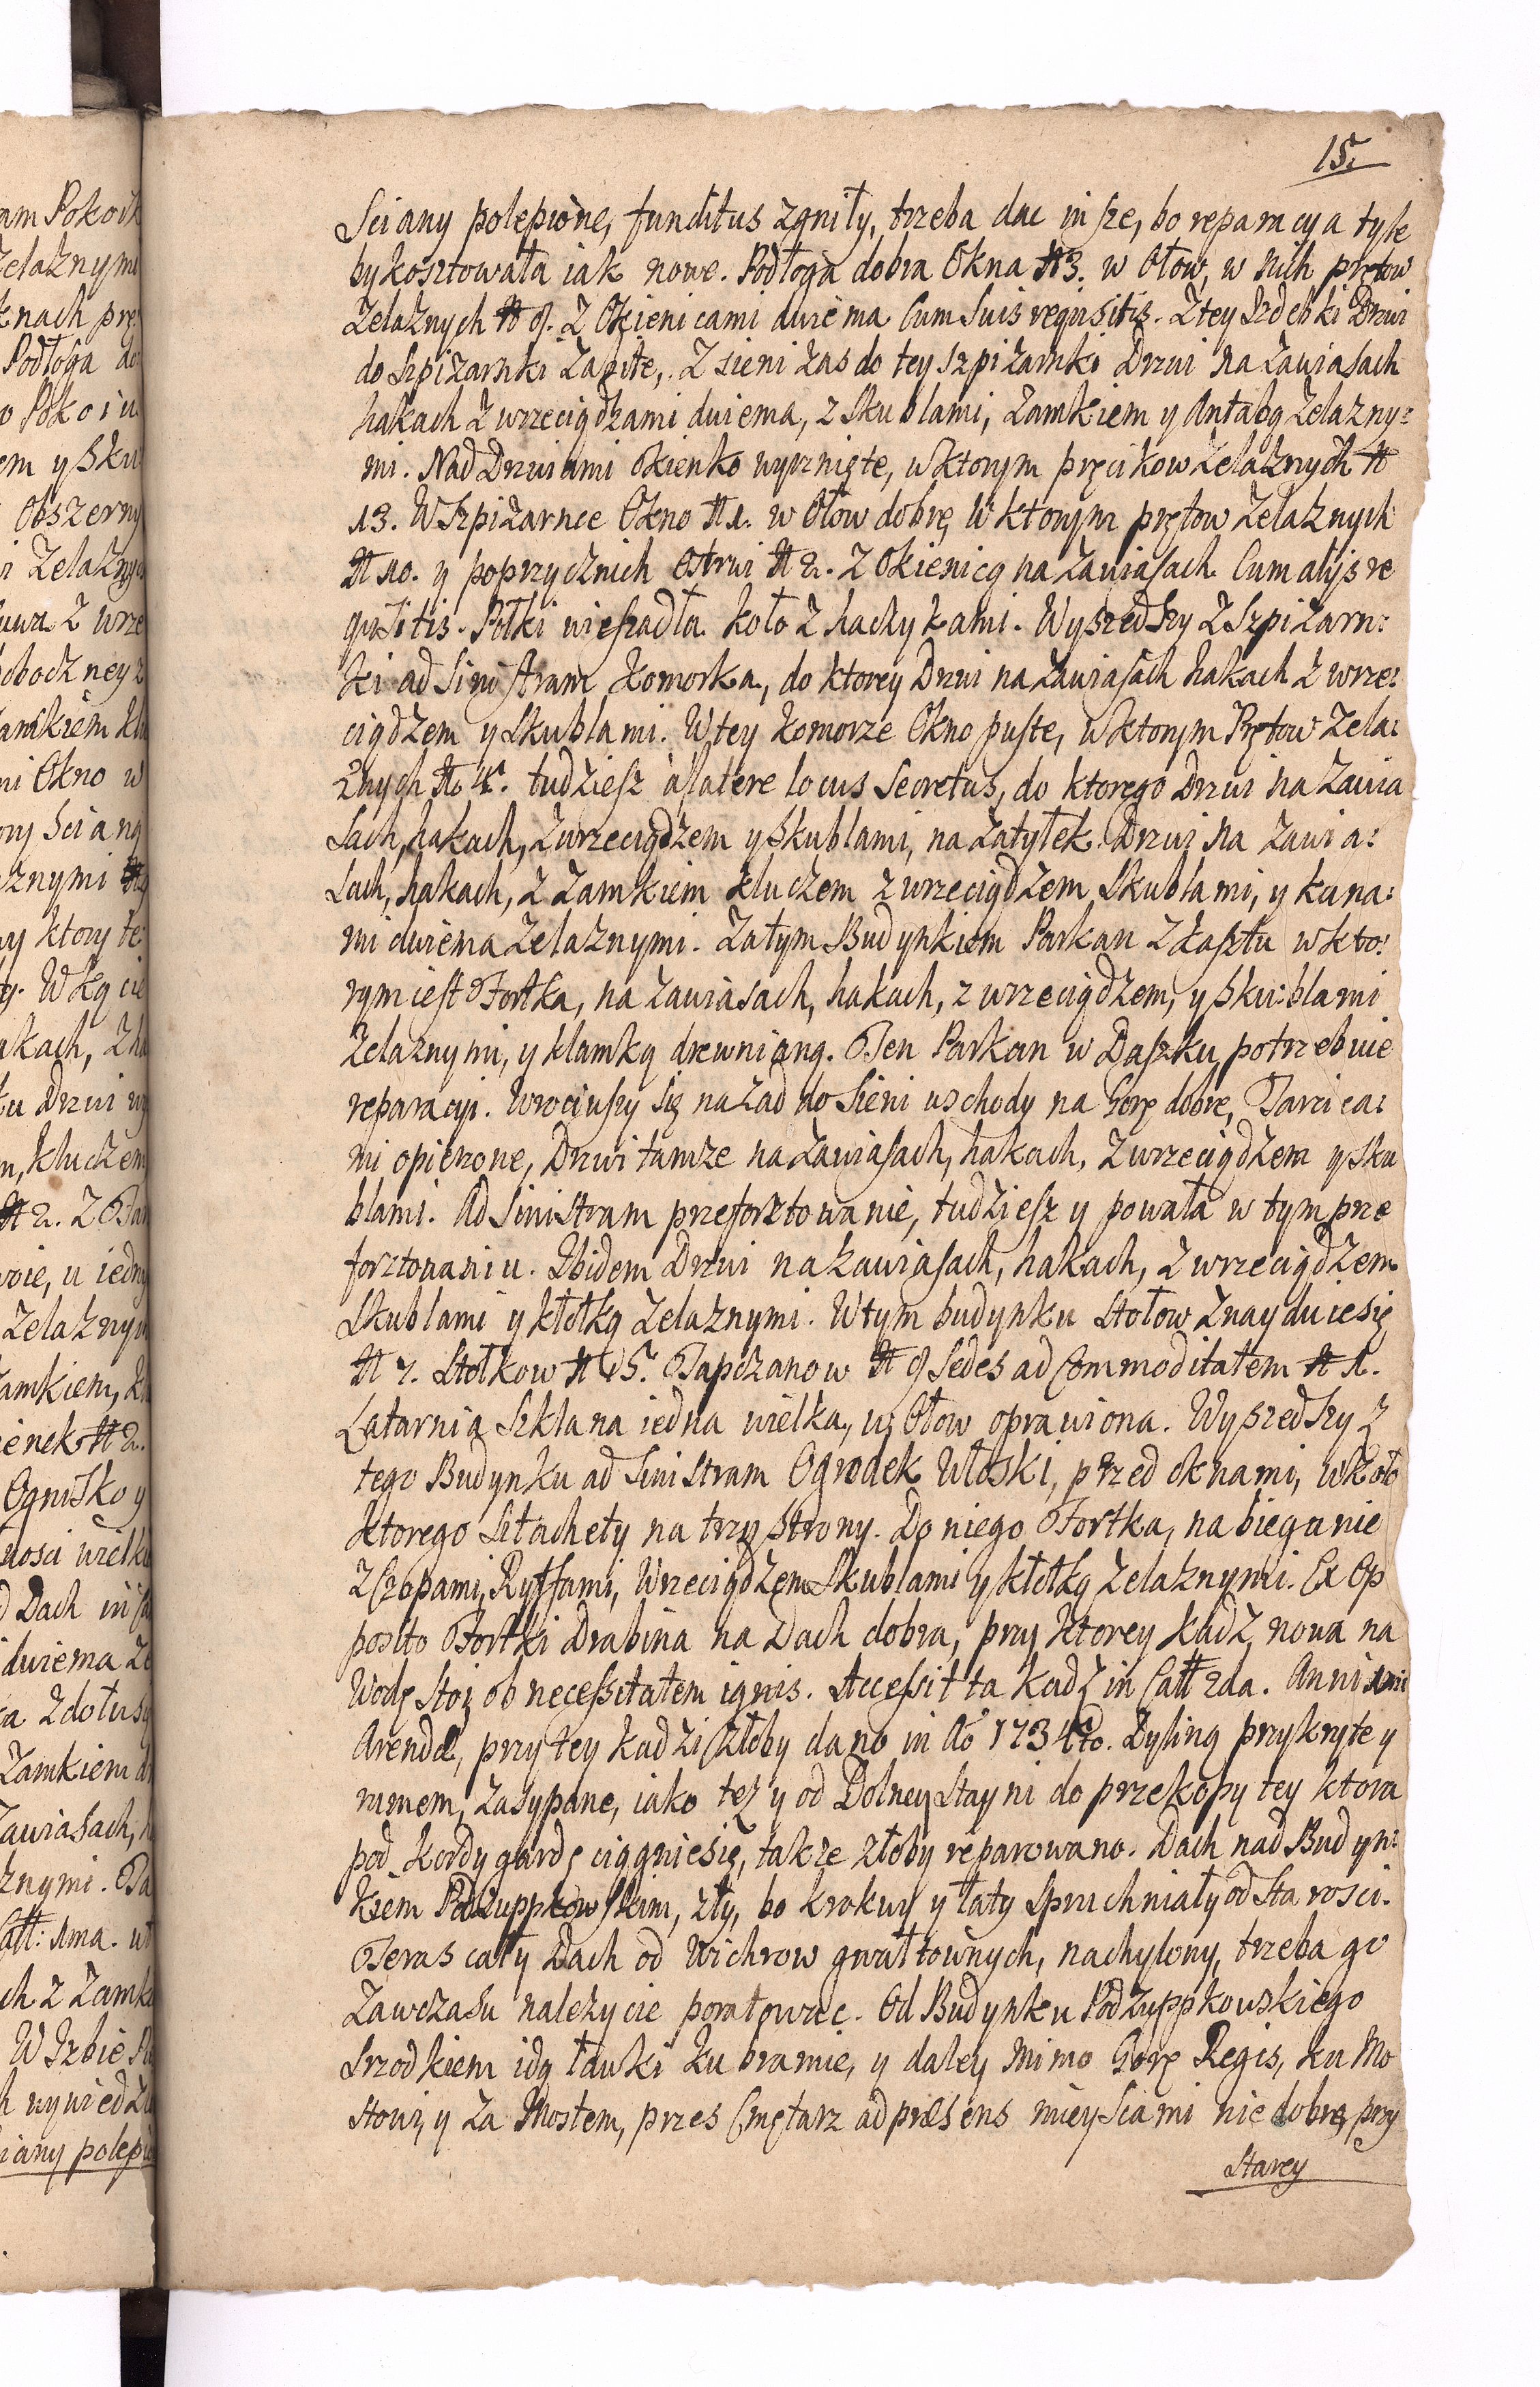 15.
Sciany polepione, funditus zgniły, trzeba dac insze, bo reparacya tyle
by kosztowała iak nowe. Podłoga dobra Okna N 3. w Ołow, w nich prętow
Zelaznych N 9. Z Okienicami dwiema Cum Suis requisitis. Z tey Izdebki Drzwi
do Szpizarnki Zabite, Z sieni zas do tey szpizarnki Drzwi na Zawiasach
hakach z wrzeciądzami dwiema, z Skublami, Zamkiem y Antabą Zelazny:
mi. Nad Drzwiami Okienko wyrznięte, w ktorym pręcikow Zelaznych N
13. W Szpizarnce Okno N 1. w Ołow dobrę W ktorym prętow Zelaznych
N 10. y poprzycznich Ostrwi N 2. Z Okienicą na Zawiasach Cum alijs re
quisitis. Połki wieszadła koło Z haczykami. Wyszedszy Z Szpizarn:
ki ad Sinistram Komorka, do ktorey Drzwi na Zawiasach hakach Z wrze:
ciądzem y Skublami. W tey komorze Okno puste, w ktorym Prętow Zela:
znych No 4. tudziesz a latere locus Secretus, do ktorego Drzwi na Zawia
Sach, hakach, Z wrzeciądzem y Skublami, na Zatyłek Drzwi na Zawia:
Sach, hakach, Z Zamkiem kluczem z wrzeciądzem Skublami, y kuna:
mi dwiema Zelaznymi. Za tym Budynkiem Parkan Z Łasztu w kto:
rym iest Fortka, na Zawiasach, hakach, z wrzeciądzem, y Sku:blami
Zelaznymi, y klamką drewnianą. Ten Parkan w Daszku potrzebuie
reparacyi. Wrociwszy się nazad do Sieni wschody na Gorę dobre, Tarcica:
mi opierzone, Drzwi tamze na Zawiasach, hakach, Z wrzeciądzem y Sku
blami. Ad Sinistram przeforsztowanie, tudziesz y powała w tym prze
forsztowaniu. Ibidem Drzwi na Zawiasach, hakach, Z wrzeciądzem
Skublami y kłotką Zelaznymi. W tym budynku Stołow Znayduie się
N 7. Stołkow N 15. Tapczanow N 9 Sedes ad Commoditatem N 1.
Latarnia Szklana iedna wielka, w Ołow oprawiona. Wyszedszy Z
tego Budynku ad Sinistram Ogrodek Włoski, przed oknami, wkoło
ktorego Sztachety na trzy Strony. Do niego Fortka, na bieganie
Z Czopami, Ryffami, Wrzeciądzem Skublami y kłotką Zelaznymi. Ex Op
posito Fortki Drabina na Dach dobra, przy ktorey kadz nowa na
Wodę Stoi ob necessitatem ignis. Accessit ta kadz in Catt 2da. Anni 1mi
Arendæ, przy tey kadzi Złoby dano in Ao 1734to. Dyliną przykryte y
rumem, Zasypane, iako też y od Dolney Stayni do przekopy tey ktora
pod Kordygardę ciągnie się, także złoby reparowano. Dach nad Budyn:
kiem Podzuppkowskim, zły, bo krokwy y łaty spruchniały od Starosci.
Teras cały Dach od Wichrow gwałtownych, nachylony, trzeba go
Zawczasu nalezycie poratowac. Od Budynku Podzuppkowskiego
Srzodkiem idą ławki ku bramie, y daley mimo Gorę Regis, ku Mo
stowi, y Za Mostem, przes Cmętarz ad præsens mieyscami nie dobre, przy
Starey